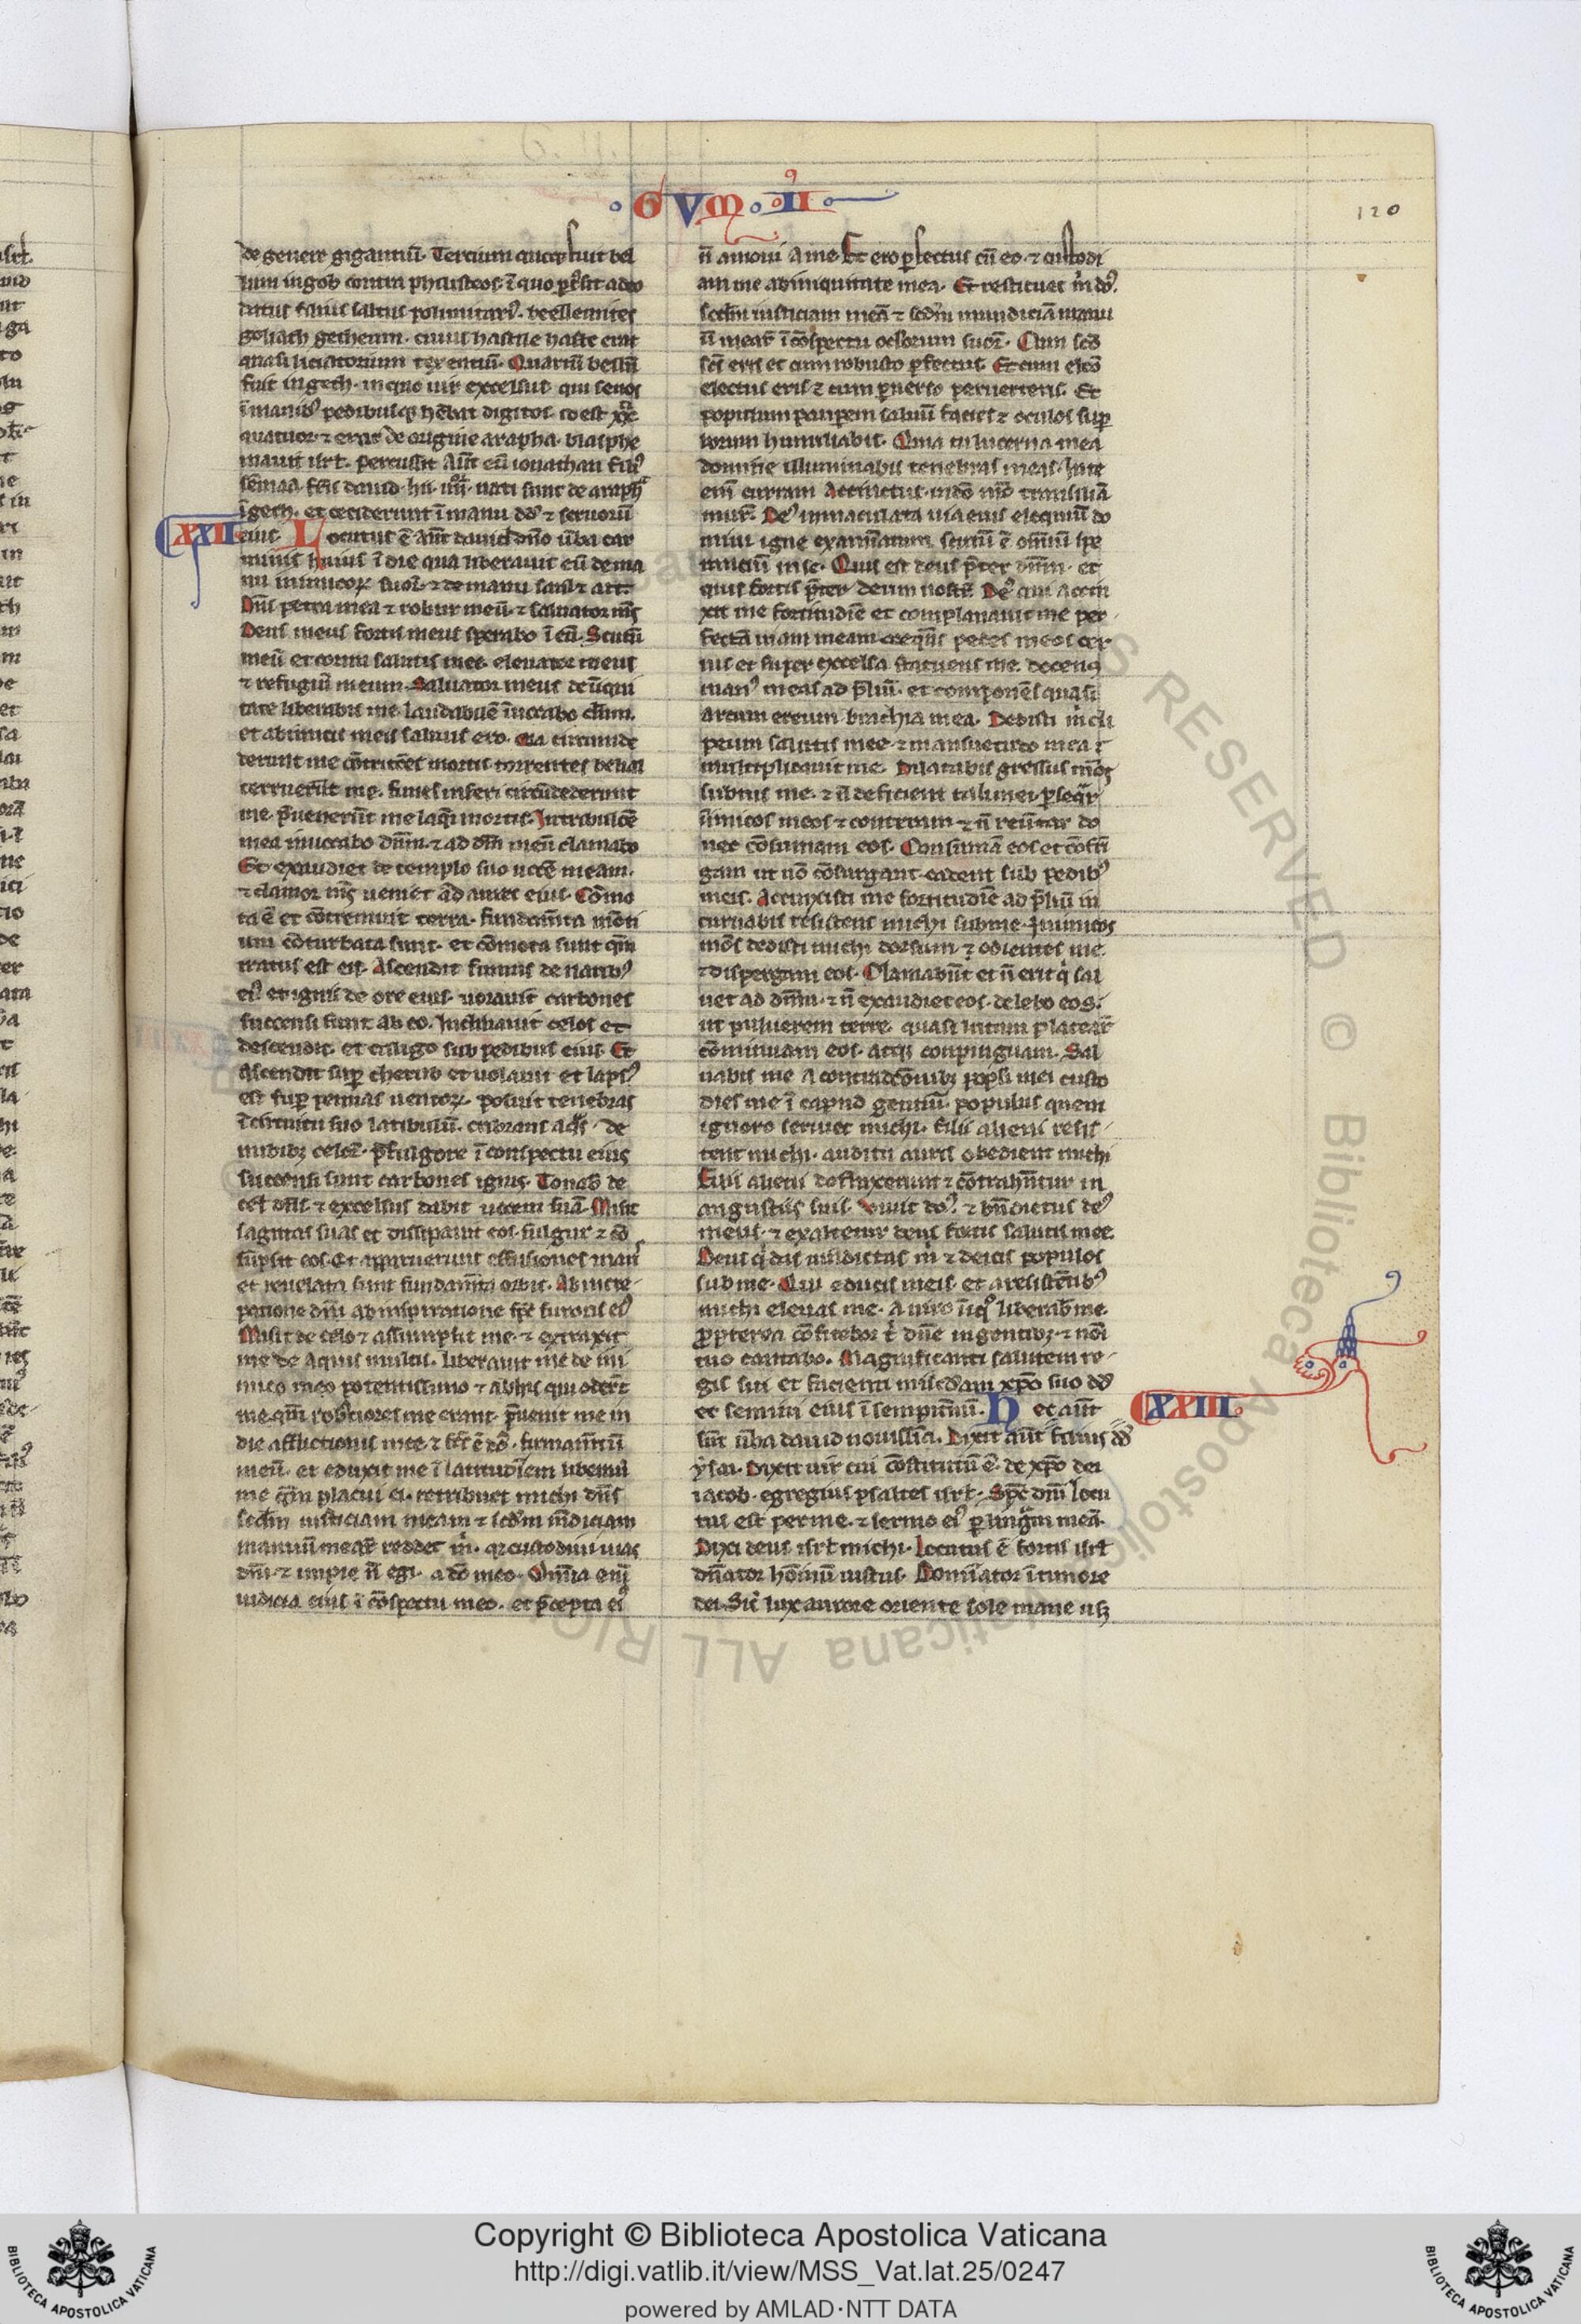 GVM II
120
de genere gigantiū. Tercium quoqȝ fuit bel
lum in gob contra phylisteos. ī quo pcussit adeo
datus filius saltus polimitari⁹. bethleemites
goliath getheum. cuius hastile haste erat
quasi liciatorium texentiū. Quartū bellū
fuit in geth. in quo uir excelsus. qui senos
ī manib⁹ pedibusqȝ hēbat digitos. id est xx
quatuor. ⁊ erat de origine arapha. blasphe
mauit isrl. percussit aūt eū ionathan fili⁹
semaa. fr̄is dauid. hii .iiii. nati sunt de araph
ī geth. et ceciderunt ī manu dd̄ ⁊ seruorū
XXII
eius. Locutus ē aūt dauid dn̄o u̅ba car
minis huius ī die qua liberauit eū de ma
nu inimicoꝝ suoꝝ ⁊ de manu saul ⁊ ait.
Dn̄s petra mea ⁊ robur meū. ⁊ saluator m̄s
Deus meus fortis meus sperabo ī eū. Scutū
meū et cornu salutis mee. eleuator meus
⁊ refugiū meum. Saluator meus de iniqui
tate liberabis me. laudabilē īuocabo dn̄m.
et ab inimicis meis saluus ero. Qia circumde
derunt me cōtritōes mortis. torrentes belial
terruerūt me. funes inferi circūdederunt
me. p̄uenerūt me laq̄i mortis. In tribulōe
mea inuocabo dn̄m. ⁊ ad dm̄ meū clamabo
Et exaudiet de templo suo uocē meam.
⁊ clamor m̄s ueniet ad aures eius. Cōmo
ta ē et cōtremuit terra. fundam̄ta mōti
um cōturbata sunt. et cōmota sunt qm̄
iratus est eis. Ascendit fumus de narib⁹
ei⁹ et ignis de ore eius uorauit. carbones
succensi sunt ab eo. Inclinauit celos et
descendit. et caligo sub pedibus eius. Et
ascendit sup cherub et uolauit. et laps⁹
est sup pennas uentoꝝ. posuit tenebras
ī circuitu suo latibulū. cribrans aq̄s de
nubibȝ celoꝝ. p̄ fulgore ī conspectu eius
succensi sunt carbones ignis. Tonab̄ de
celo dn̄s. ⁊ excelsus dabit uocem suā. Misit
sagittas suas et dissipauit eos. fulgur ⁊ cō
sūpsit eos. Et apparuerunt effusiones maris
et reuelata sunt fundam̄ta orbis. Ab incre
patione dn̄i ab inspiratione sp̄s furoris ei⁹
Misit de celo ⁊ assumpsit me. ⁊ extraxit
me de aquis multis. liberauit me de ini
mico meo potentissimo ⁊ ab his qui oderāt
me. qm̄ robustiores me erant. p̄uenit me in
die afflictionis mee ⁊ fc̄s ē dn̄s firmam̄tū
meū. et eduxit me ī latitudinem liberauit
me quia placui ei. retribuet michi dn̄s
scd̄m iusticiam meam ⁊ scd̄m mūdiciam
manuū meaꝝ reddet m̄. quia custodiui uias
dn̄i. ⁊ impie n̄ egi a dō meo. Omia eni
iudicia eius ī cōspectu meo. et p̄cepta ei⁹
n̄ amoui a me. Et ero pfectus cū eo. ⁊ custodi
am me ab iniquitate mea. Et restituet m̄ dn̄s.
scd̄m iusticiam meā ⁊ scd̄m mundiciā manu
ū meaꝝ ī cōspectu oculorum suoꝝ. Cum scō
scs̄ eris et cum robusto pfectus. Et cum electo
electus eris ⁊ cum puerso peruerteris. Et
populum pauperem saluū facies ⁊ oculos sup
borum humiliabis. Quia tu lucerna mea
domine illuminabis tenebras meas. In te
eni curram accinctus. in dō mō transiliā
murū. De⁹ immaculata uia eius eloquiū do
mini igne examinatum. scutū ē omniū spe
rantiū in se. Quis est deus p̄ter dn̄m. et
quis fortis p̄ter deum nostrū. De⁹ qui accin
xit me fortitudīe et complanauit me per
fectā uiam meam. coequās pedes meos cer
uis et super excelsa statuens me. docens
man⁹ meas ad p̄liū. et componēs quasi
arcum ereum brachia mea. Dedisti m̄ cli
peum salutis mee. ⁊ mansuetudo mea
multiplicauit me. Dilatabis gressus meos
subtus me. ⁊ n̄ deficient tali mei. psequar
inimicos meos ⁊ conteram ⁊ n̄ reuertar do
nec cōsumam eos. Consumā eos et cōfrī
gam ut nō cōsurgant. cadent sub pedib⁹
meis. Accinxisti me fortitudīe ad p̄liū in
curuabis resistens michi sub me. Inimicos
meos dedisti michi dorsum. ⁊ odientes me.
⁊ dispergam eos. Clamabūt et n̄ erit q̄ sal
uet ad dn̄m. ⁊ n̄ exaudiet eos. delebo eos
ut puluerem terre. quasi lutum plateaꝝ
cōminuam eos. atqȝ conpinguam. Sal
uabis me a contradictionibȝ popli mei custo
dies me ī caput gentiū. populus quem
ignoro seruiet michi. filii alieni resis
tent michi. auditu auris obedient michi
Filii alieni defluxerunt ⁊ cōtrahentur in
angustiis suis. Viuit dn̄s. ⁊ bn̄dictus de⁹
meus. ⁊ exaltetur deus fortis salutis mee.
Deus q̄ das uindictas m̄ ⁊ deicis populos
sub me. Qui educis meis. et a resistētib⁹
michi eleuas me. A uiro iniquo liberabis me.
ꝓpterea cōfitebor t̄ dn̄e in gentibȝ. ⁊ noī
tuo cantabo. Magnificanti salutem re
gis sui et facienti mīcdiam xp̄o suo dd̄
et semini eius ī sempiternū. Hec aūt
XXIII
sūt u̅ba dauid nouissīa. Dixit aūt filius
dd̄
ysai. Dixit uir cui cōstitutū ē. de xp̄o dei
iacob. egregius psaltes isrl. Spc̄ dn̄i locu
tus est per me. ⁊ sermo ei⁹ p linguā meā.
Dixi deus isrl michi. Locutus ē fortis isrl
dn̄ator hominū iustus. Domīator ī timore
dei. Sic̄ lux aurore oriente sole mane usȝ
Copyright © Biblioteca Apostolica Vaticana
http://digi.vatlib.it/view/MSS_Vat.lat.25/0247
powered by AMLAD·NTT DATA